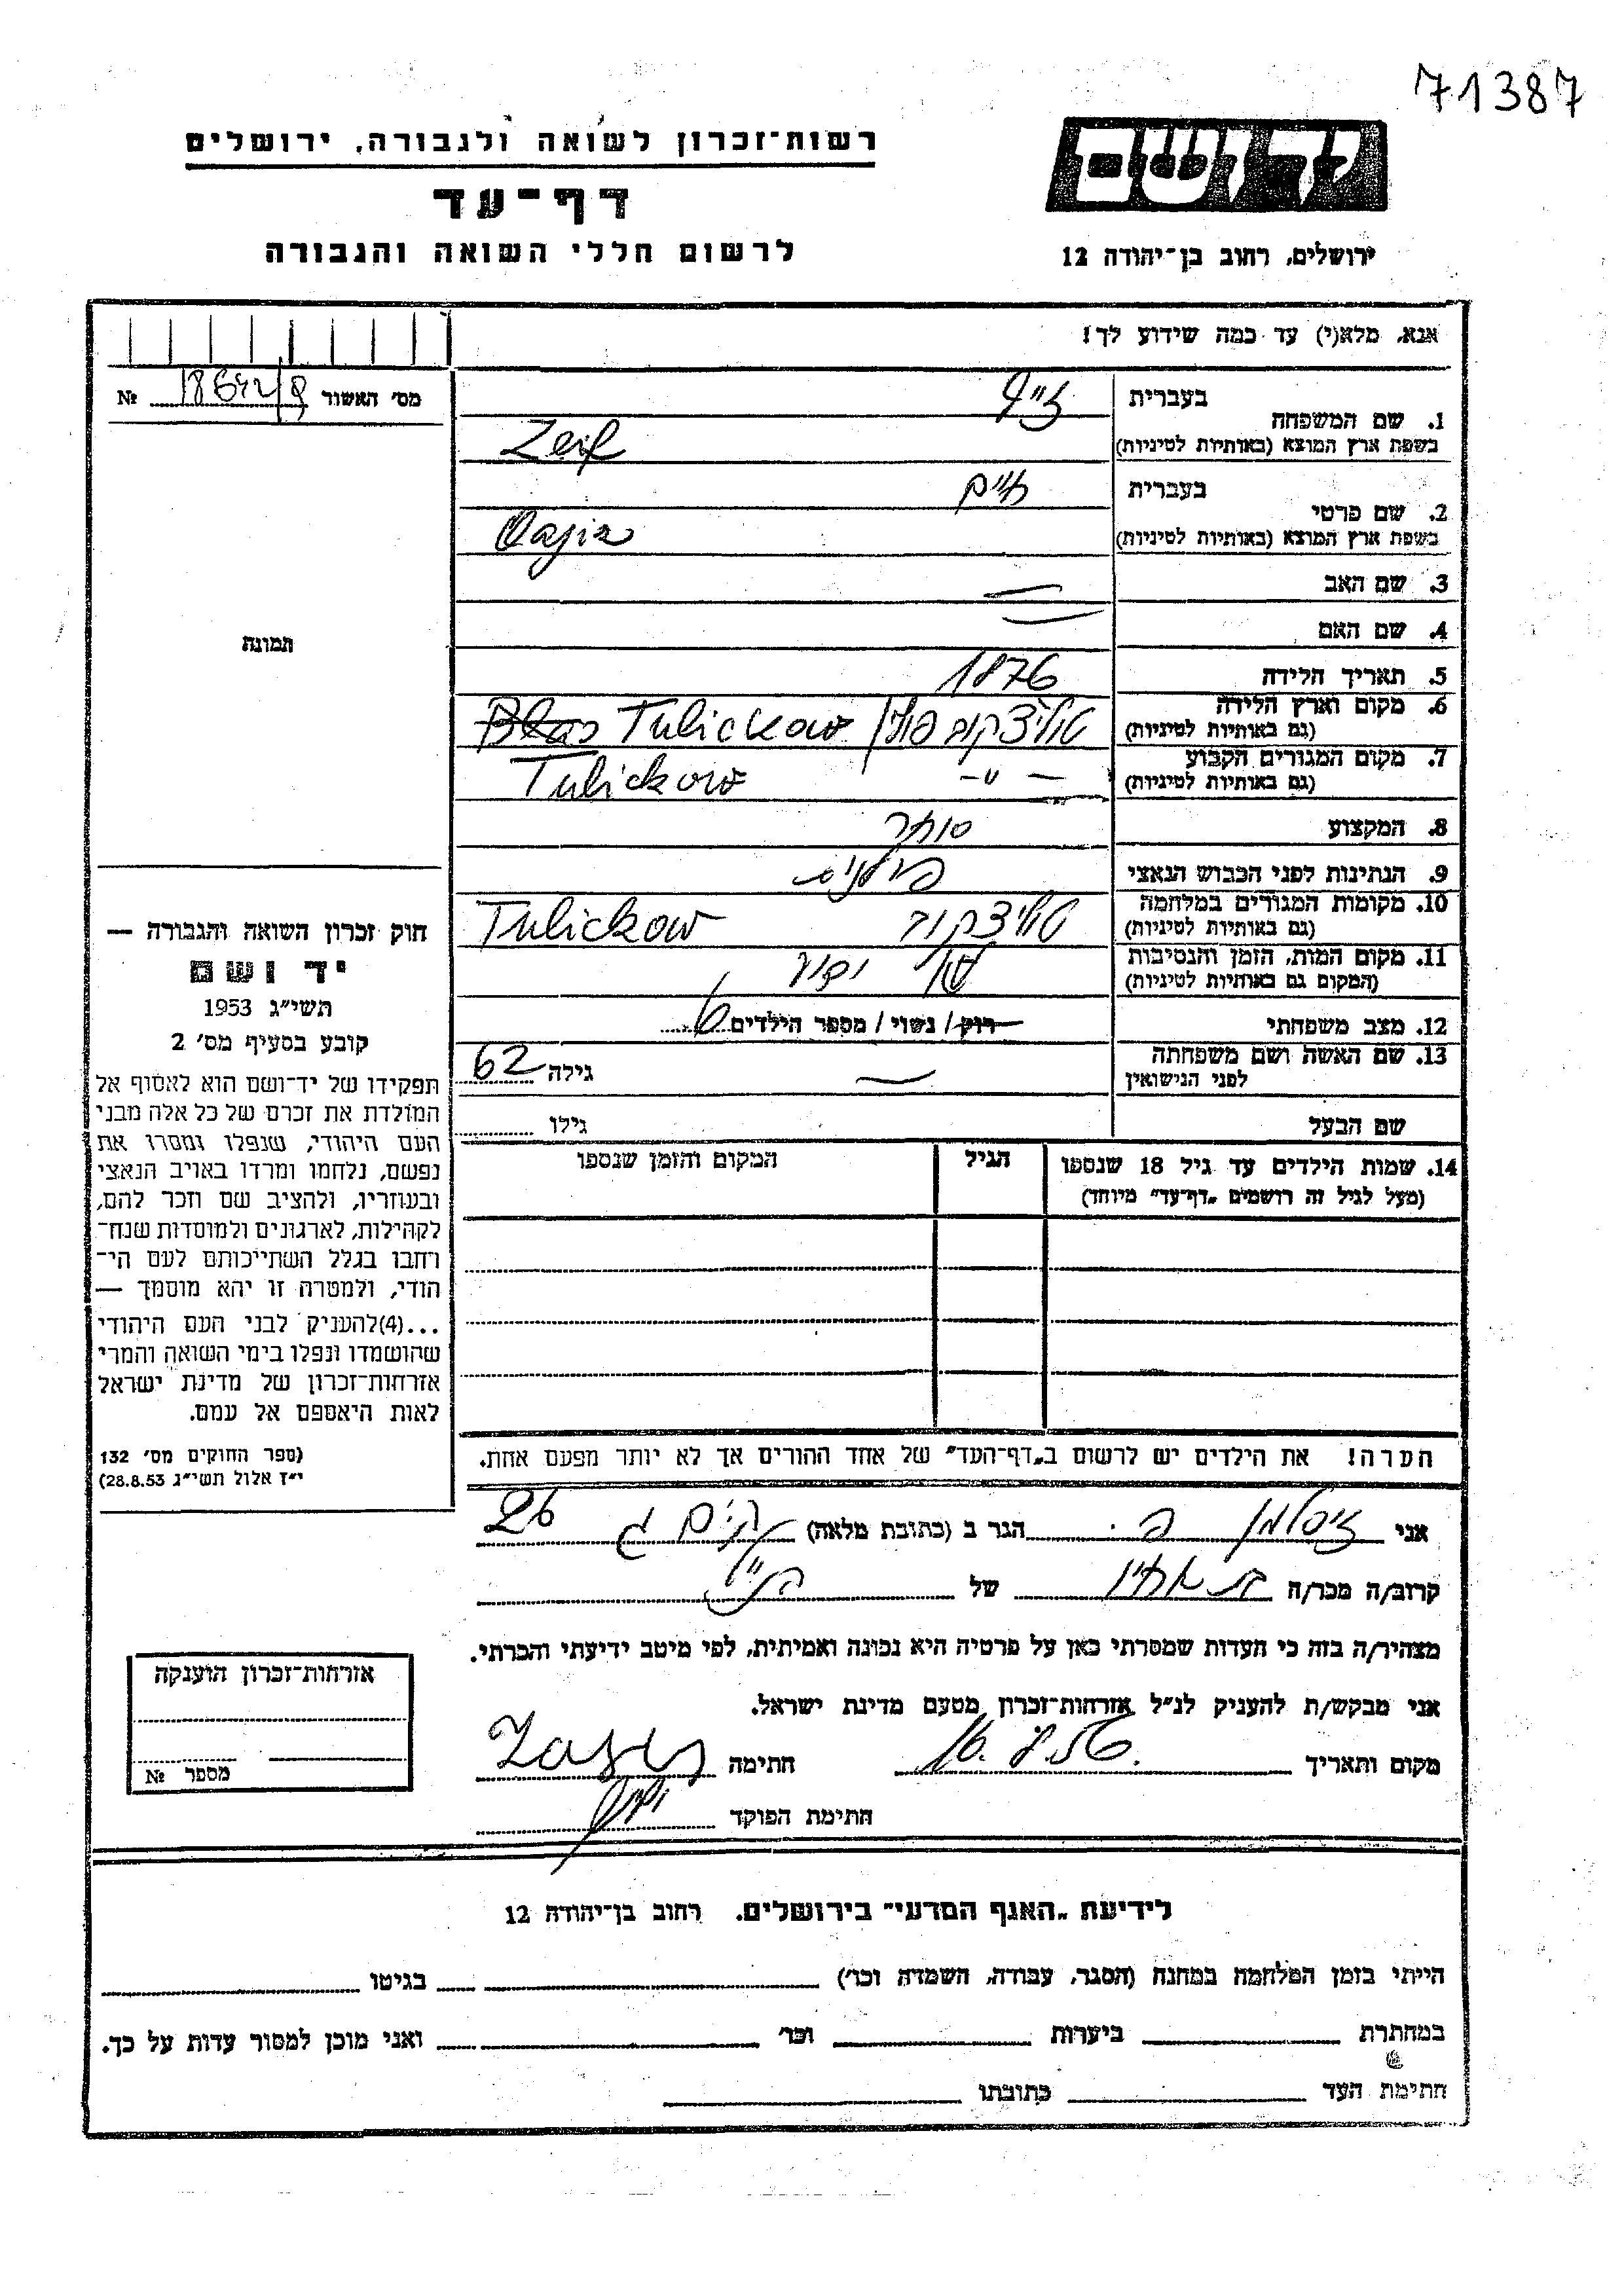 71387
רשות־זכרון לשואה ולגבורה, ירושלים
דף־עד
לרשום חללי השואה והגבורה
יד ושם
ירושלים, רחוב בן־יהודה 12
אנא, מלא(י) עד כמה שידוע לך!
מס' האשור № 
1. שם המשפחה
בעברית זייף
בשפת ארץ המוצא (באותיות לטיניות) Zeif
2. שם פרטי
בעברית חיים
בשפת ארץ המוצא (באותיות לטיניות)
3. שם האב —
4. שם האם —
5. תאריך הלידה 1876
6. מקום וארץ הלידה
(גם באותיות לטיניות) טוליצקוב פולין Tulickow
7. מקום המגורים הקבוע
(גם באותיות לטיניות) — " — Tulickow
8. המקצוע סוחר
9. הנתינות לפני הכבוש הנאצי פולנית
10. מקומות המגורים במלחמה
(גם באותיות לטיניות) טוליצקוב Tulickow
11. מקום המות, הזמן והנסיבות
(המקום גם באותיות לטיניות)
12. מצב משפחתי רווק / נשוי / מספר הילדים 6
13. שם האשה ושם משפחתה
לפני הנישואין — גילה 62
שם הבעל גילו
14. שמות הילדים עד גיל 18 שנספו
(מעל לגיל זה רושמים „דף־עד" מיוחד)
הגיל
המקום והזמן שנספו
הערה! את הילדים יש לרשום ב„דף־העד" של אחד ההורים אך לא יותר מפעם אחת.
תמונה
חוק זכרון השואה והגבורה —
יד ושם
תשי"ג 1953
קובע בסעיף מס' 2
תפקידו של יד־ושם הוא לאסוף אל
המולדת את זכרם של כל אלה מבני
העם היהודי, שנפלו ומסרו את
נפשם, נלחמו ומרדו באויב הנאצי
ובעוזריו, ולהציב שם וזכר להם,
לקהילות, לארגונים ולמוסדות שנח־
רחבו בגלל השתייכותם לעם הי־
הודי, ולמטרה זו יהא מוסמך —
...(4)להעניק לבני העם היהודי
שהושמדו ונפלו בימי השואה והמרי
אזרחות־זכרון של מדינת ישראל
לאות היאספם אל עמם.
(ספר החוקים מס' 132
י"ז אלול תשי"ג 28.8.53)
אני זיסלמן פ. הגר ב (כתובת מלאה) 26
קרוב/ה מכר/ה בת אחיו של הנ"ל
מצהיר/ה בזה כי העדות שמסרתי כאן על פרטיה היא נכונה ואמיתית, לפי מיטב ידיעתי והכרתי.
אני מבקש/ת להעניק לנ"ל אזרחות־זכרון מטעם מדינת ישראל.
מקום ותאריך 16.8.56. חתימה
חתימת הפוקד
אזרחות־זכרון הוענקה
מספר №
לידיעת „האגף המדעי" בירושלים. רחוב בן־יהודה 12
הייתי בזמן המלחמה במחנה (הסגר, עבודה, השמדה וכו') בגיטו
במחתרת ביערות וכו' ואני מוכן למסור עדות על כך.
חתימת העד כתובתו